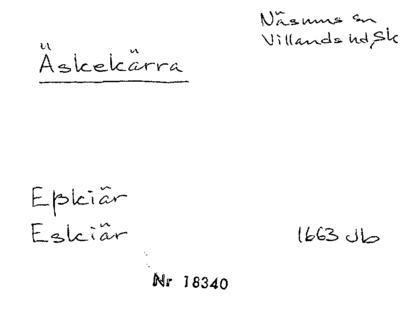 Näsums sn
Villands hd, Sk
Äskekärra
Eßkiär
Eskiär 1663 Jb
Nr 18340